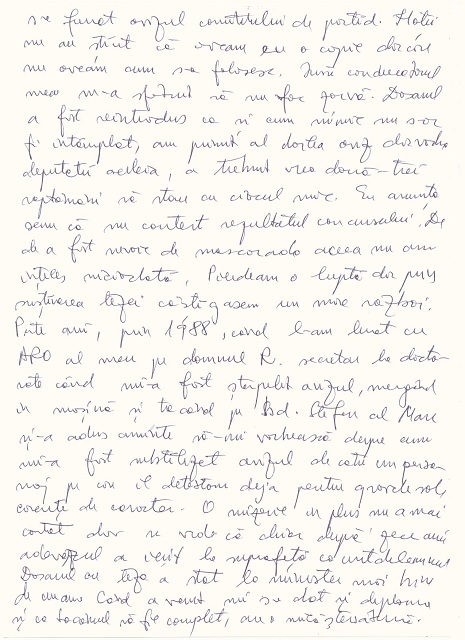 se furat avizul comitetului de partid. Hoții
nu au știut că aveam eu o copie dar că
nu aveam cum s-o folosesc. Însă conducătorul
meu m-a sfătuit să nu fac gargă. Dosarul
a fost reintrodus ca și cum nimic nu s-ar
fi întâmplat, am primit al doilea aviz
deputații aceleia, a trebuit vreo două-trei
săptămâni să stau cu ciocul mic. Eu anunțasem
sem că nu contest rezultatul concursului. De
ce a fost nevoie de mascarada aceea nu am
înțeles niciodată. Pierdeam o luptă dar prin
susținerea tezei câștigasem un mare război.
Peste ani, prin 1988, când l-am luat cu
ARO al meu pe domnul R. secretar la docto-
rate când mi-a fost șterpelit avizul, mergând
în mașină și tocând pe Bd. Ștefan cel Mare
și-a adus aminte să-mi vorbească despre cum
mi-a fost subtilizat avizul de către un perso
naj pe care îl detestam deja pentru grave
carențe de caracter. O mizerie în plus nu a mai
contat dar se vede că chiar după zece ani
adevărul a venit la suprafață ca untdelemnul
Dosarul cu teza a stat la minister mai bine
de un an. Când a venit mi s-a dat și diploma
și ca tacâmul să fie complet, au